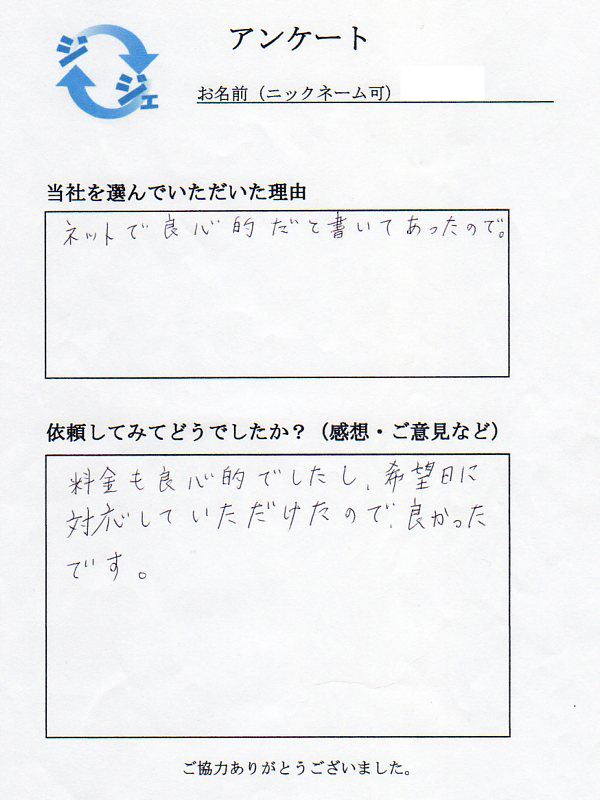 ジジェ
アンケート
お名前（ニックネーム可）
当社を選んでいただいた理由
ネットで良心的だと書いてあったので。
依頼してみてどうでしたか？（感想・ご意見など）
料金も良心的でしたし、希望日に
対応していただけたので、良かった
です。
ご協力ありがとうございました。